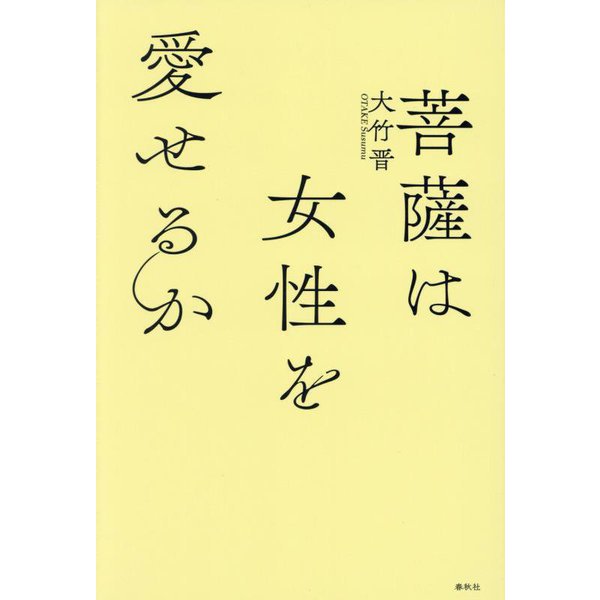 菩薩は
女性を
愛せるか
大竹晋
OTAKE Susumu
春秋社